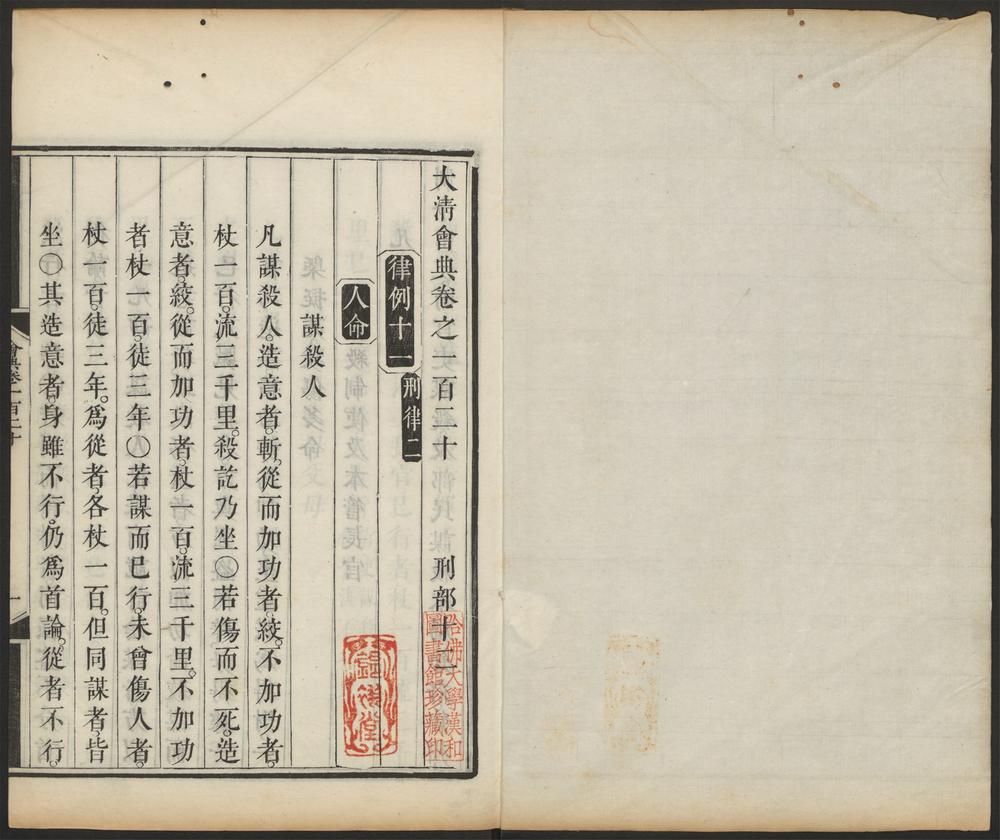 大清會典卷之一百二十　刑部十二
律例十一　刑律二
人命
謀殺人
凡謀殺人。造意者。斬。從而加功者。絞。不加功者。
杖一百。流三千里。殺訖乃坐〇若傷而不死。造
意者。絞。從而加功者。杖一百。流三千里。不加功
者。杖一百。徒三年〇若謀而已行。未曾傷人者。
杖一百。徒三年。爲從者。各杖一百。但同謀者。皆
坐〇其造意者。身雖不行。仍爲首論。從者不行。
會典卷一百二十
一
哈佛大學漢和
圖書館珍藏印